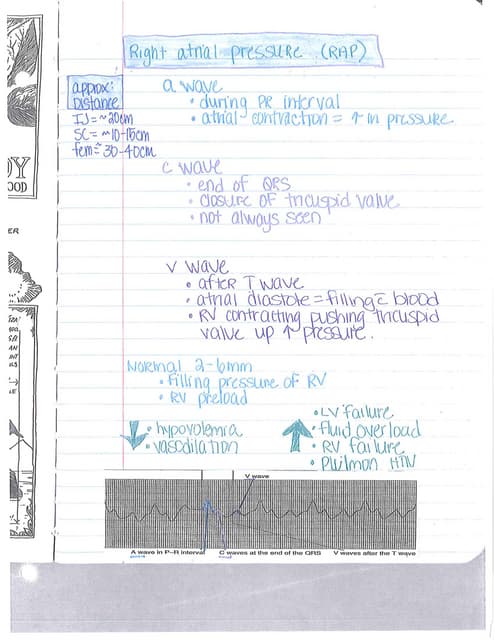 Right atrial pressure (RAP)
approx:
Distance
IJ = ~20cm
SC = ~10-15cm
fem = ~30-40cm
a wave
• during PR interval
• atrial contraction = ↑ in pressure
c wave
• end of QRS
• closure of tricuspid valve
• not always seen
v wave
• after T wave
• atrial diastole = filling c̄ blood
• RV contracting pushing tricuspid
valve up ↑ pressure.
Normal 2-6mm
• filling pressure of RV
• RV preload
↓ • hypovolemia
• vasodilation
↑ • LV failure
• fluid overload
• RV failure
• Pulmon HTN
V wave
A wave in P-R interval
C waves at the end of the QRS
V waves after the T wave
OOD
ER